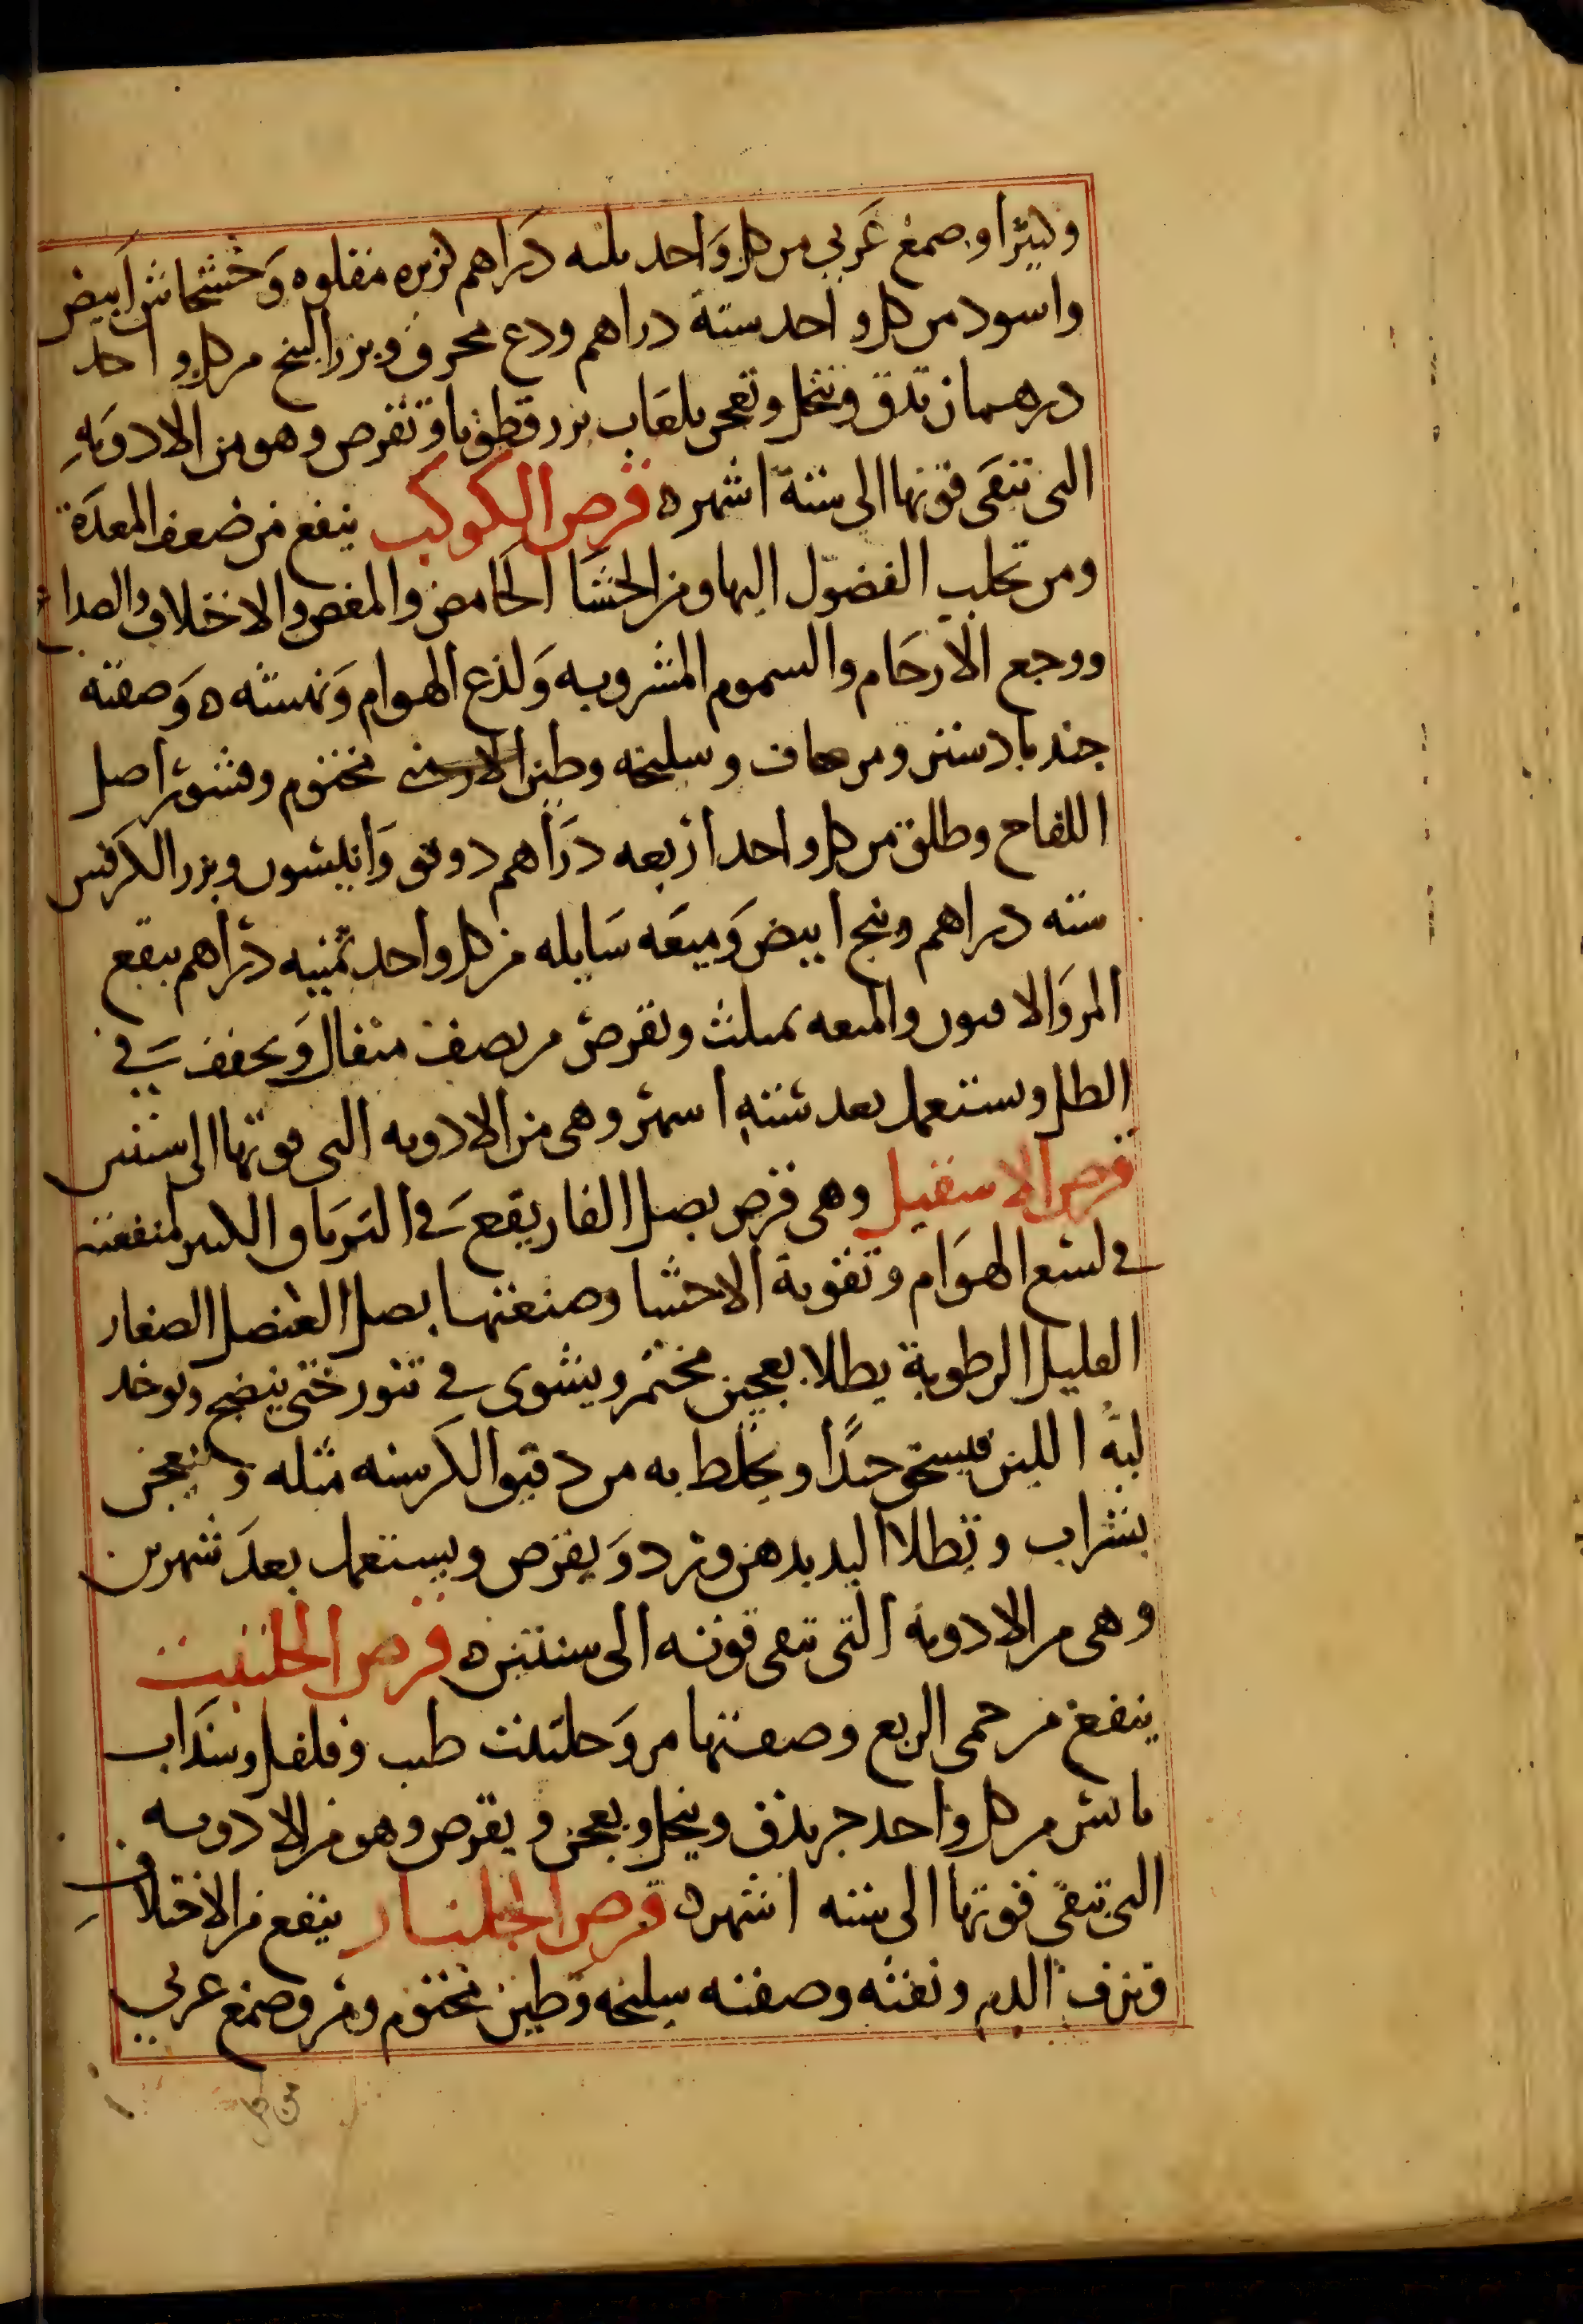 وكثيرا وصمغ عَربي من كل وَاحد ثلثه دَراهم كزبره مقلوه وَخشخاش اَبيض
واسود من كل واحد ستة دراهم ودع محرق وبزر البنج من كل واحد
درهمان تدق وتنخل وتعجن بلعَاب بزر قطونا وتقرص وهو من الادويَهِ
التى تبقَى قوتها الى ستة اشهر ه قرص الكوكب ينفع من ضعف المعدَة
ومن تحلب الفضوّل اليها ومن الجشا الحَامض والمغص والاختلاف والصداع
ووجع الارحَام والسموم المشروبه وَلذع الهوام وَنهسته ه وَصفته
جندبادستر ومر صاف وسليخه وطين مختوم وقشور اصل
اللفاح وطلق من كل واحد اربعه دَراهم دوقو وَانيسُون وبزر الكَرفس
سته دراهم وبنج ابيض وَميعَه سَايله من كل واحد ثمنيه دَراهم ينقع
المر وَالافيون والميعه بمثلث وتقرص من نصف مثقال وَيجفف في
الظل ويستعمل بعد ستهِ اسهر وهى من الادويه التى قوتها الى سنتين
قرص الاسقيل وهى قرص بصل الفار يقع في الترياق الكبير لمنفعته
في لسع الهوَام وتقوية الاحشا وصنعتها بصل العنصل الصغار
القليل الرطوبة يطلا بعجين مختمر ويشوى في تنور حتى ينضج ويوخد
لبهُ اللين فيسحق جدًا ويخلط به من دقيق الكَرسنه مثله ويعجن
بشراب وتطلا اليد بدهن ورد وَيقرص ويستعمل بعدَ شهرين
وهى من الادويه التى تبقى قوته الى سنتين ه قرص الحلتيت
ينفع من حمى الربع وصفتها مر وَحلتيت طيب وفلفل وسَذاب
يابس من كل واحد جز يدق وينخل ويعجن ويقرص وهو من الادويه
التى تبقى قوتها الى سته اشهر ه قرص الجلنار ينفع من الاختلاف
ونزف الدم ونفثه وصفته سليخه وَطين مختوم ومر وصمغ عربي
من كل